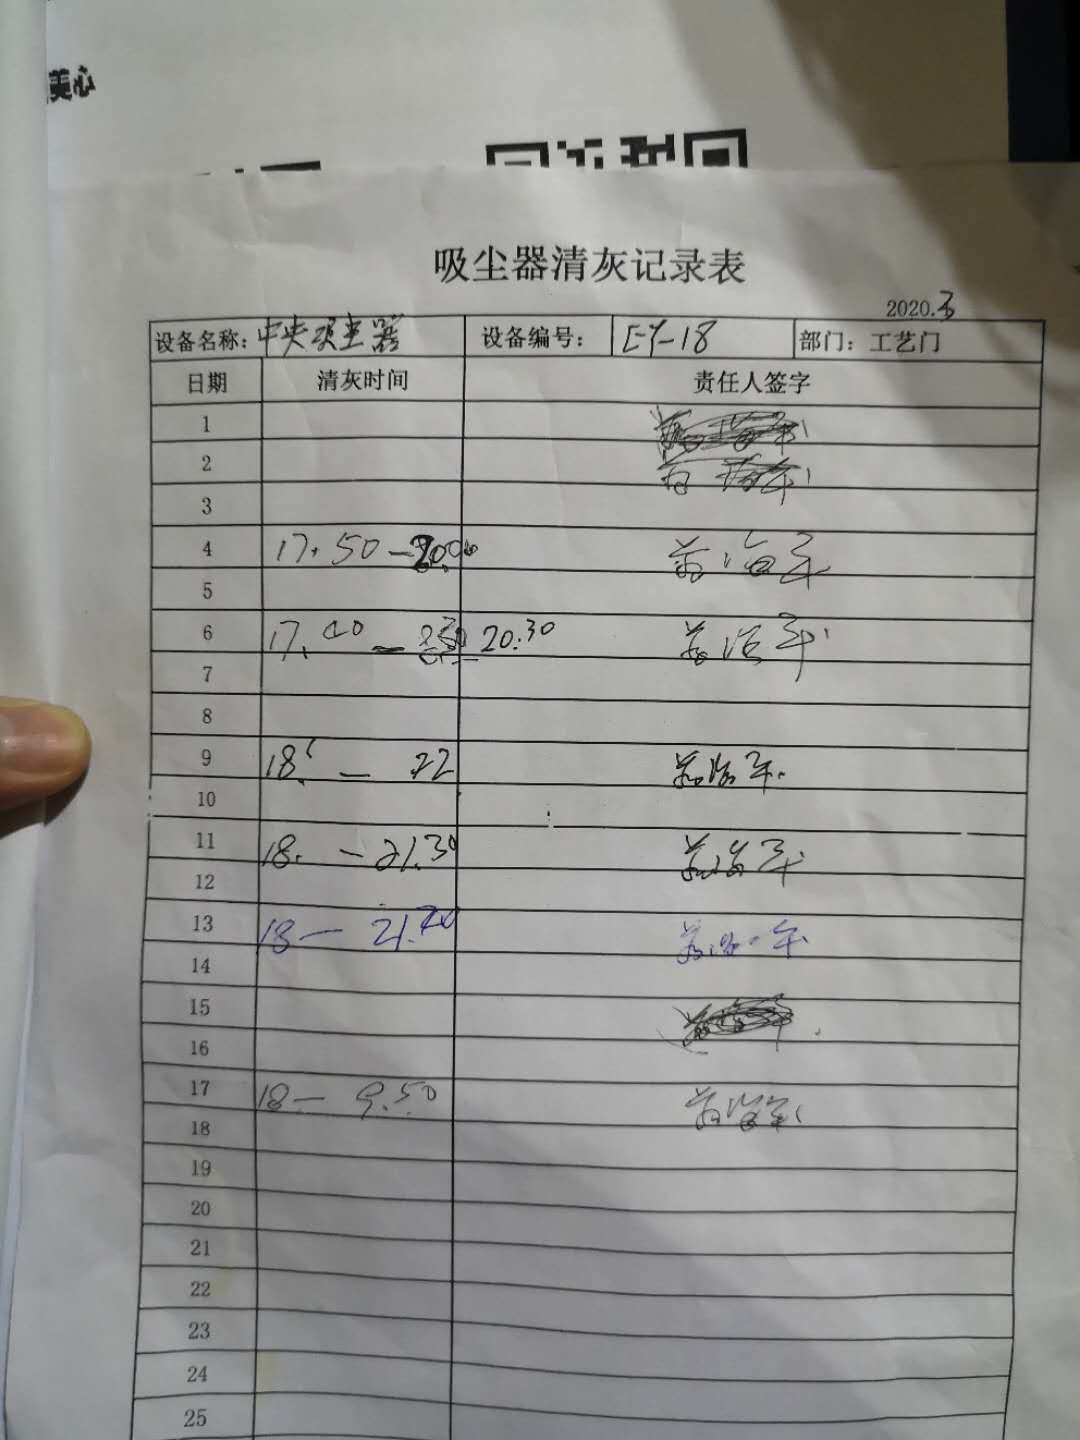 美心
吸尘器清灰记录表
2020.3
设备名称: 中央吸尘器 设备编号: EY-18 部门: 工艺门
日期 清灰时间 责任人签字
1
2
3
4 17.50—20.00
5
6 17.40— 20.30
7
8
9 18.— 22
10
11 18.—21.30
12
13 18—21.20
14
15
16
17 18—9.50
18
19
20
21
22
23
24
25